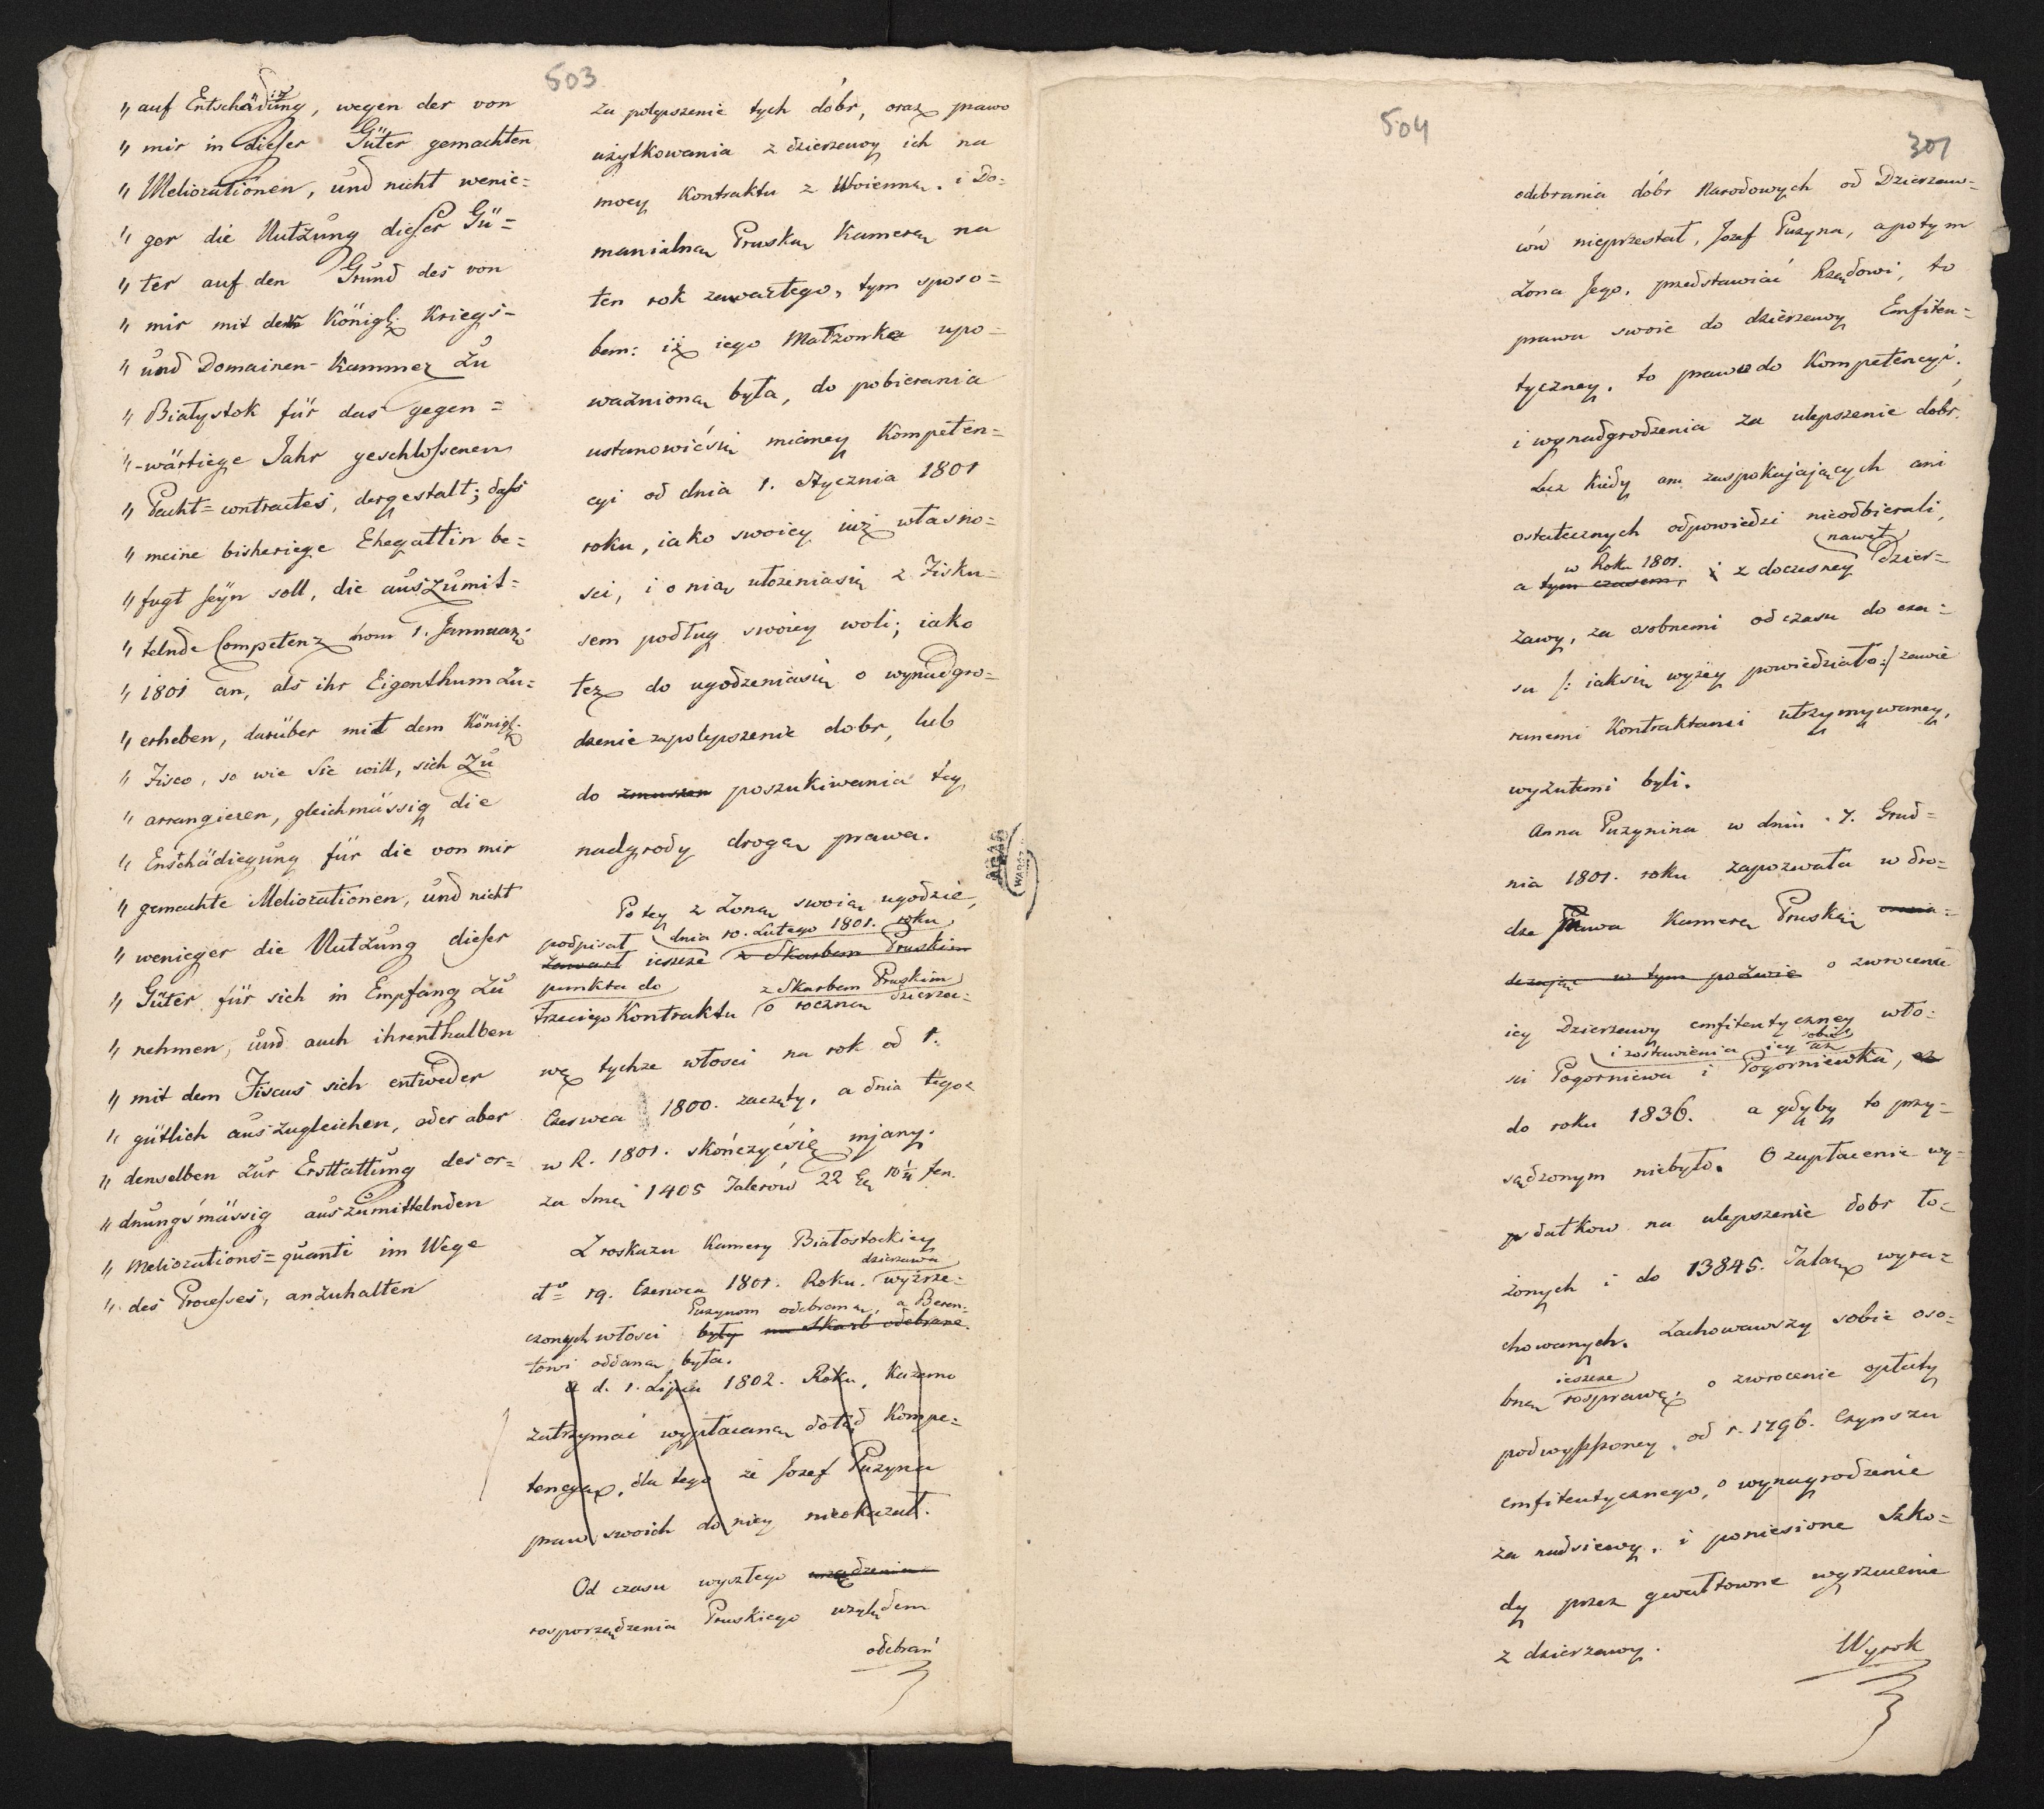 503
„ auf Entschädigung, wegen der von
„ mir in dieser Güter gemachten
„ Meliorationen, und nicht wenie=
„ ger die Nutzung dieser Gü=
„ ter auf den Grund des von
„ mir mit dem Königl. Kriegs-
„ und Domainen-Kammer zu
„ Białystok für das gegen=
„ -wärtiege Jahr geschlossenen
„ Pacht=contractes, dergestalt; dass
„ meine bisheriege Ehegattin be=
„ fugt seyn soll, die auszumit=
„ telnde Competenz vom 1. Jannuar.
„ 1801 an, als ihr Eigenthum zu=
„ erheben, darüber mit dem Königl.
„ Fisco, so wie Sie will, sich zu
„ arrangieren, gleichmässig die
„ Enschädiegung für die von mir
„ gemachte Meliorationen, und nicht
„ wenieger die Nutzung dieser
„ Güter für sich in Empfang zu
„ nehmen, und auch ihrenthalben
„ mit dem Fiscus sich entweder
„ gütlich auszugleichen, oder aber
„ denselben zur Ersttattung des or=
„ dnungsmässig auszumittelnden
„ Meliorations=quanti im Wege
„ des Processes, anzuhalten
za polepszenie tych dóbr, oraz prawo
użytkowania z dzierzawy ich na
mocy Kontraktu z Woienną i Do=
manialną Pruską Kamerą na
ten rok zawartego, tym sposo=
bem: iż iego Małżonka upo=
ważnioną była, do pobierania
ustanowićsię mianey Kompeten=
cyi od dnia 1. Stycznia 1801
roku, iako swoiey iuż własno=
sci, i o nią ułożeniasię z Fisku=
sem podług swoiey woli; iako
też do ugodzeniasię o wynadgro=
dzenie zapolepszenie dobr, lub
do poszukiwania tey
nadgrody drogą prawa.
Po tey z Żoną swoią ugodzie,
podpisał dnia 10. Lutego 1801. roku
zawarł ieszcze z Skarbem Pruskim
punkta do z Skarbem Pruskim
trzeciego Kontraktu o roczną dzierża=
wę tychże włosci na rok od 1.
Czerwca 1800. zaczęty, a dnia tegoż
w R. 1801. skończyćsię mjany.
za Smę 1405 Talerów 22 Gg 10 1/4 fen.
Z roskazu Kamery Białostockiey
dzierzawa
do 19. Czerwca 1801. Roku. wyżrze=
Puzynom odebraną, a Beren=
czonych włosci były na Skarb odebrane.
towi oddaną była.
a d. 1. Lipca 1802. Roku, Kazano
zatrzymać wypłacaną dotąd Kompe=
tencyą, dla tego że Jozef Puzyna
praw swoich do niey nieokazał.
Od czasu wyszłego urządzenia
rosporządzenia Pruskiego względem
odebrań
504
301
odebrania dóbr Narodowych od Dzierzaw=
ców nieprzestał, Jozef Puzyna, apotym
Żona Jego, przedstawiać Rządowi, to
prawa swoie do dzierzawy Emfiteu=
tyczney, to prawo do Kompetencyi,
i wynadgrodzenia za ulepszenie dobr.
Lecz kiedy ani zaspokajających ani
ostatecznych odpowiedzi nieodbierali,
w Roku 1801. nawet
a tym czasem, i z doczesney Dzier=
żawy, za osobnemi od czasu do cza=
su /: iaksię wyżey powiedziało :/ zawie
ranemi Kontraktami utrzymywaney,
wyzutemi byli.
Anna Puzynina w dniu 7. Grud=
nia 1801. roku zapozwała w dro=
dze Prawa Kamerę Pruską
w tym pozwie o zwrocenie
iey Dzierzawy emfiteutyczney wło=
i zostawienia iey sobie aż
sci Pogorniewa i Pogorniewka, aż
do roku 1836. a gdyby to przy=
sądzonym niebyło. O zapłacenie wy=
datkow na ulepszenie dobr ło=
żonych i do 13845. Talarów wyra=
chowanych. Zachowawszy sobie oso=
ieszcze
bną rosprawę, o zwrocenie opłaty
podwyższoney, od r. 1796. Czynszu
emfiteutycznego, o wynagrodzenie
za nadsiewy, i poniesione Szko=
dy przez gwałtowne wyrzucenie
z dzierzawy.
Wyrok